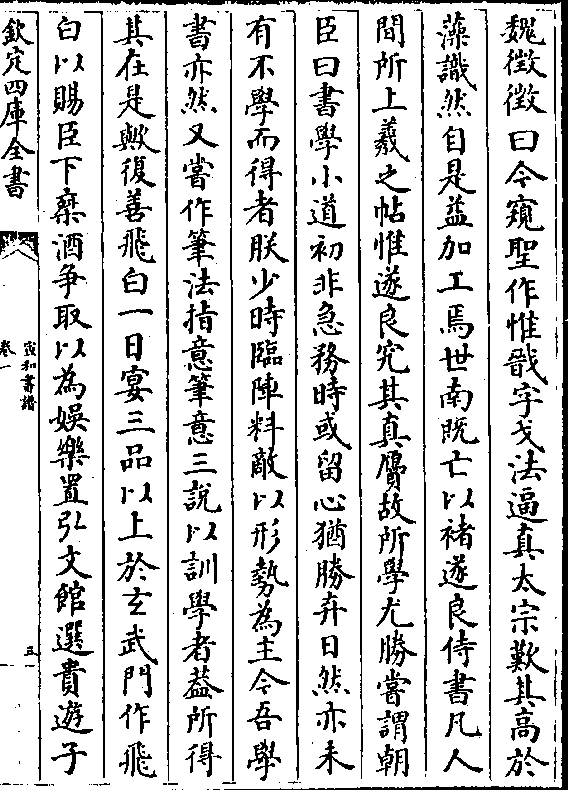 魏徴徴曰今窺聖作惟戩字戈法逼真太宗歎其髙於
藻識然自是益加工焉世南既亡以褚遂良侍書凡人
間所上羲之帖惟遂良究其真贗故所學尤勝嘗謂朝
臣曰書學小道初非急務時或留心猶勝弃日然亦未
有不學而得者朕少時臨陣料敵以形勢為主今吾學
書亦然又嘗作筆法指意筆意三說以訓學者葢所得
其在是歟復善飛白一日宴三品以上於𤣥武門作飛
白以賜臣下椉酒争取以為娯樂置弘文館選貴遊子
欽定四庫全書
宣和書譜
卷一
五